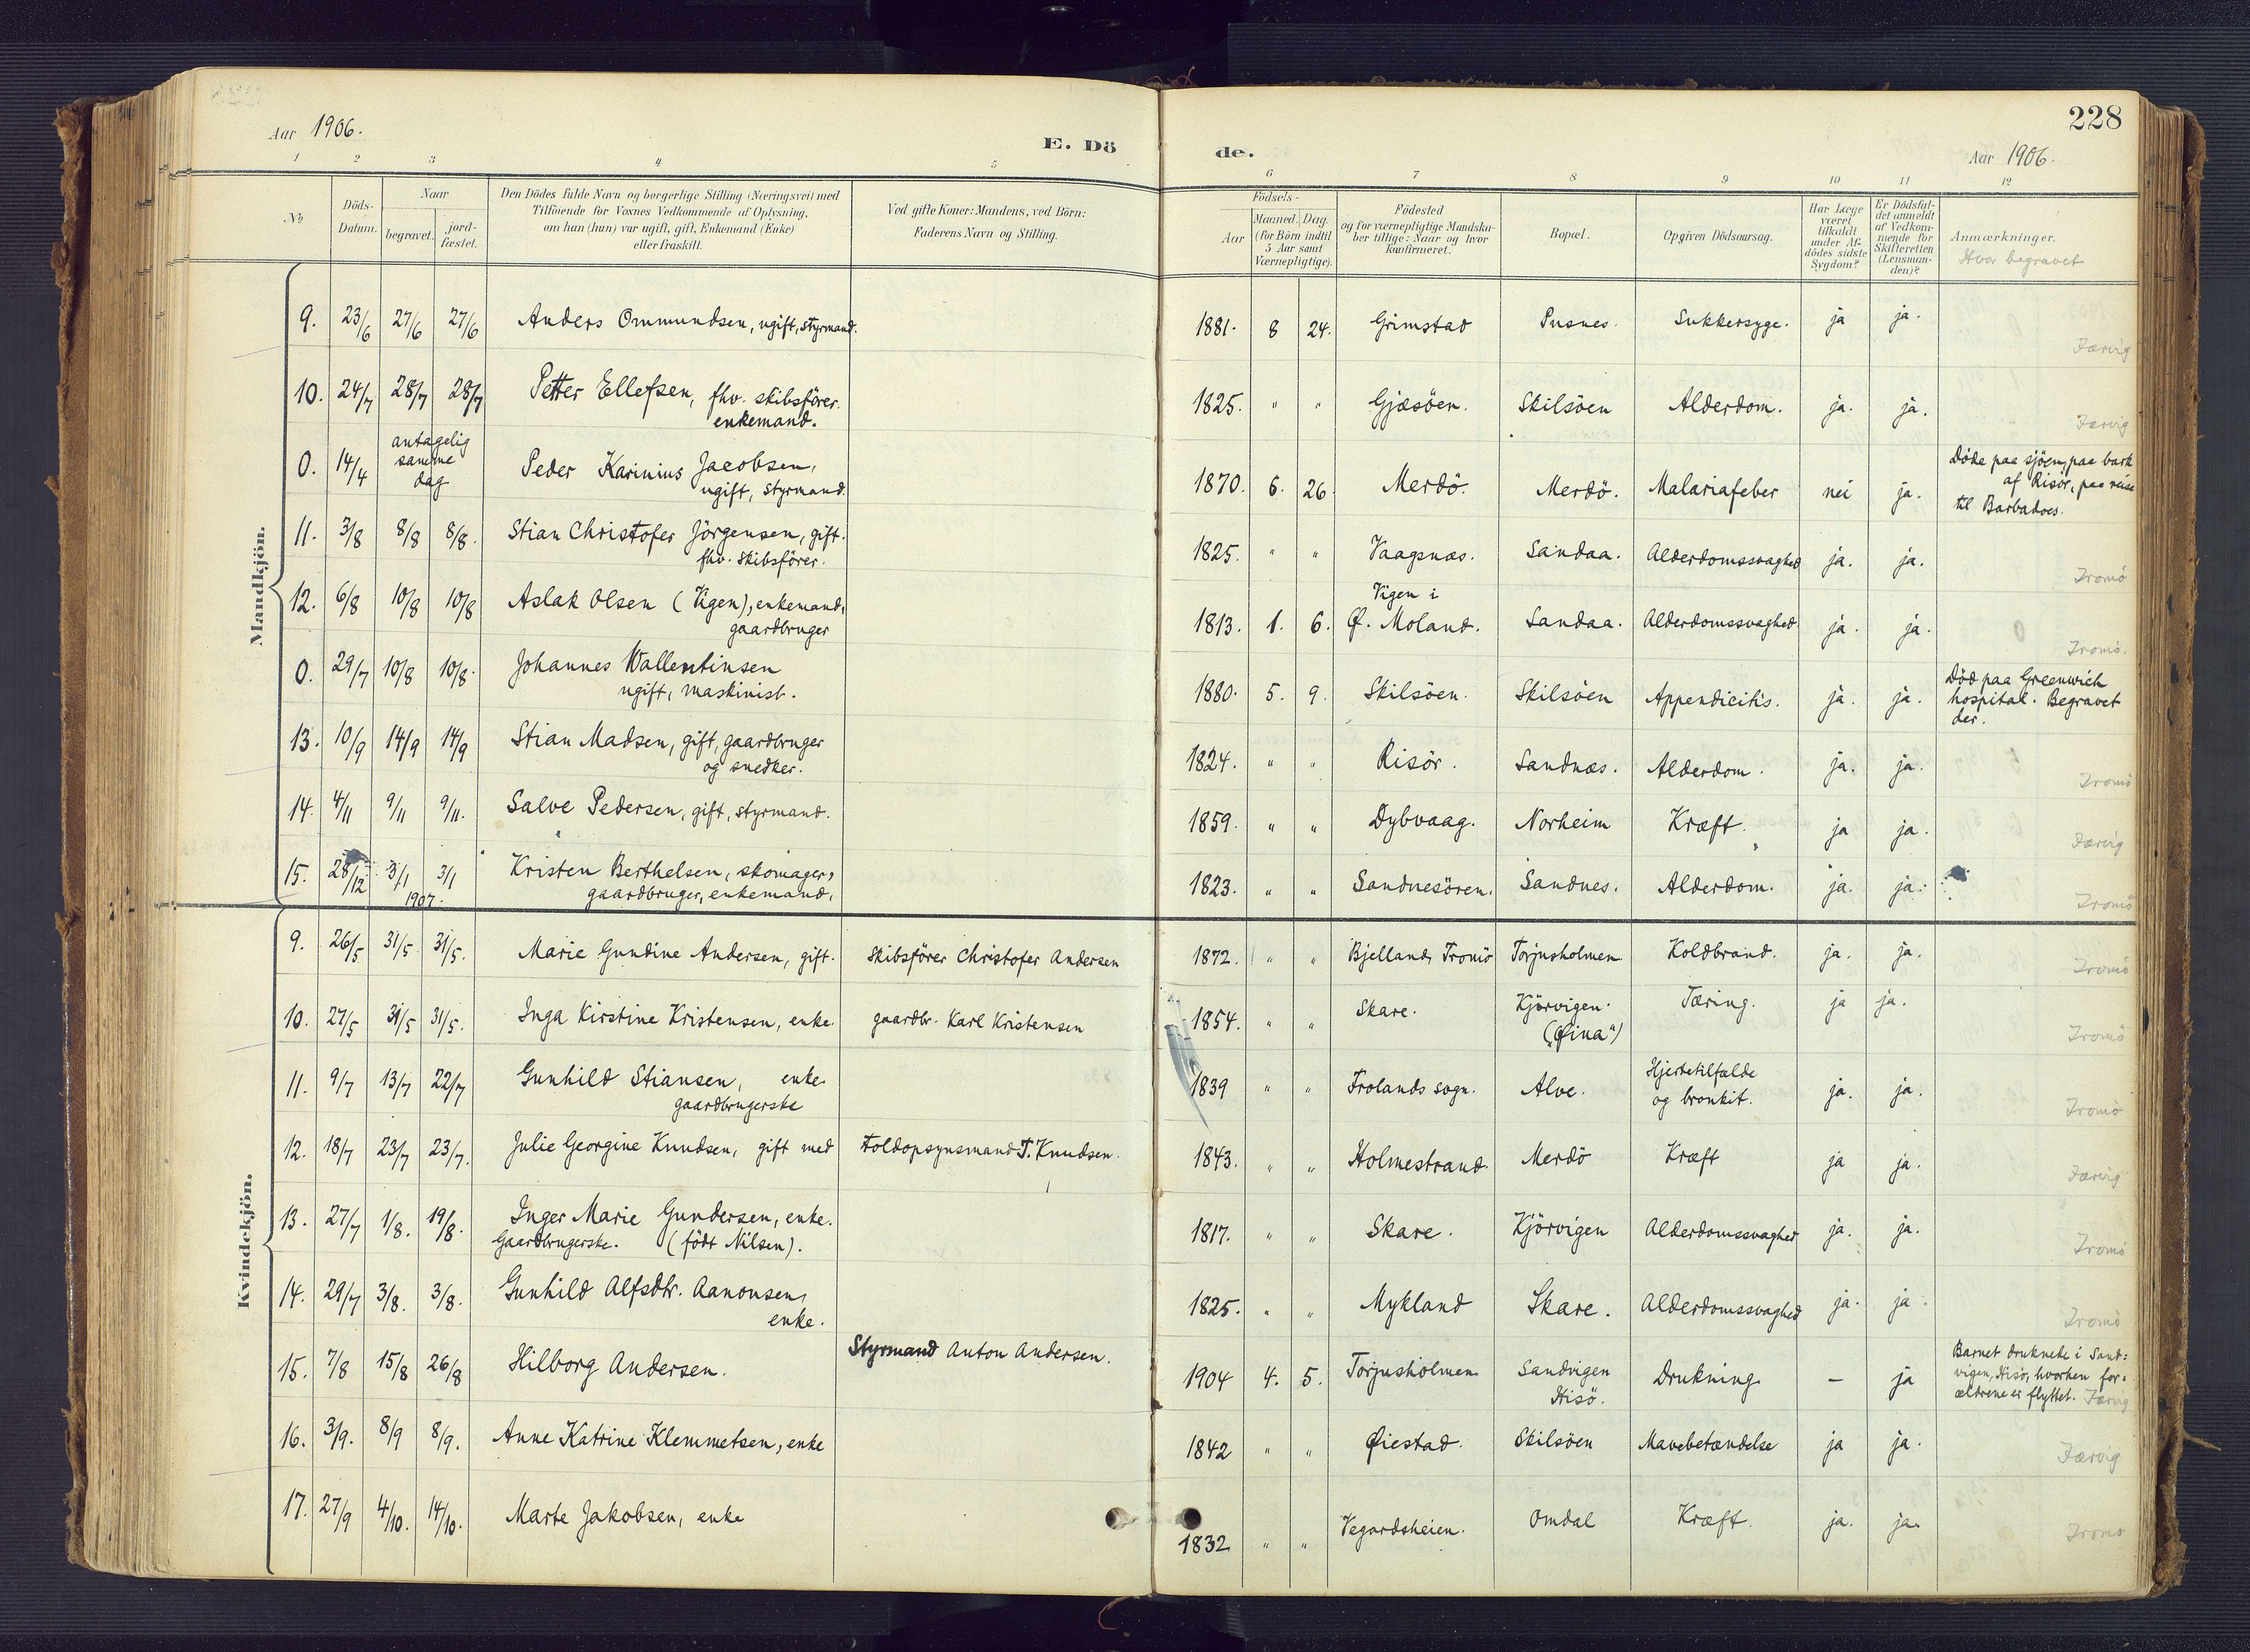 Aar 1906.
E. Dö
de.
228
Aar 1906.
1 2 3 4 5 6 7 8 9 10 11 12
№
Döds-
Datum.
Naar
begravet.
jord-
fæstet.
Den Dödes fulde Navn og borgerlige Stilling (Næringsvei) med
Tilföiende for Voxnes Vedkommende af Oplysning,
om han (hun) var ugift, gift, Enkemand (Enke)
eller fraskilt.
Ved gifte Koner: Mandens, ved Börn:
Faderens Navn og Stilling.
Födsels-
Aar
Maaned. Dag.
(for Börn indtil
5 Aar samt
Værnepligtige).
Födested
og for værnepligtige Mandska-
ber tillige: Naar og hvor
konfirmeret.
Bopæl.
Opgiven Dödsaarsag.
Har Læge
været
tilkaldt
under Af-
dödes sidste
Sygdom?
Er Dödsfal-
det anmeldt
af Vedkom-
mende for
Skifteretten
(Lensman-
den)?
Anmærkninger.
Hvor begravet
Mandkjön.
9. 23/6 27/6 27/6 Anders Ommundsen, ugift, styrmand. 1881. 8 24. Grimstad Pusnes. Sukkersyge. ja ja.
Færvig
10. 24/7 28/7 28/7 Petter Ellefsen, fhv. skibsförer. 1825. " " Gjæsöen. Skilsöen Alderdom. ja. ja.
enkemand.
Færvig
0. 14/4 antagelig
samme
dag
Peder Karinius Jacobsen,
ugift, styrmand. 1870. 6. 26. Merdö. Merdö. Malariafeber nei ja.
Döde paa sjöen, paa bark
af Risör, paa reise
til Barbadoes.
11. 3/8 8/8 8/8. Stian Christofer Jörgensen, gift.
fhv. skibsförer. 1825. " " Vaagsnæs. Sandaa. Alderdomssvaghed ja. ja.
Tromö
12. 6/8 10/8 10/8 Aslak Olsen (Vigen), enkemand,
gaardbruger 1813. 1. 6. Vigen i
Ø. Moland. Sandaa. Alderdomssvaghed. ja. ja.
Tromö.
0. 29/7 10/8 10/8. Johannes Wallentinsen
ugift, maskinist. 1880. 5. 9. Skilsöen. Skilsöen Appendicitis. ja. ja.
Död paa Greenwich
hospital. Begravet
der.
13. 10/9 14/9 14/9 Stian Madsen, gift, gaardbruger
og snedker. 1824. " " Risör. Sandnæs. Alderdom. ja. ja.
Tromö
14. 4/11 9/11 9/11. Salve Pedersen, gift, styrmand. 1859. " " Dybvaag. Norheim Kræft. ja ja.
Færvig
15. 28/12 3/1 3/1 Kristen Berthelsen, skomager,
1907. gaardbruger, enkemand. 1823. " " Sandnesören. Sandnes. Alderdom. ja. ja.
Tromö
Kvindekjön.
9. 26/5 31/5 31/5. Marie Gundine Andersen, gift. skibsförer Christofer Andersen 1872. " " Bjelland, Tromö Torjusholmen Koldbrand. ja. ja.
Tromö
10. 27/5 31/5 31/5. Inga Kirstine Kristensen, enke. gaardbr. Karl Kristensen 1854. " " Skare. Kjörvigen.
("Øina") Tæring. ja ja.
Tromö
11. 9/7 13/7 22/7 Gunhild Stiansen, enke
gaardbrugerske 1839 " " Frolands sogn. Alve. Hjertetilfælde
og bronkit. ja. ja.
Tromö
12. 18/7 23/7 23/7. Julie Georgine Knudsen, gift med toldopsynsmand T. Knudsen. 1843. " " Holmestrand. Merdö Kræft ja ja.
Færvig
13. 27/7 1/8. 19/8. Inger Marie Gundersen, enke.
Gaardbrugerske. (födt Nilsen). 1817. " " Skare. Kjörvigen Alderdomssvaghed ja. ja.
Tromö
14. 29/7 3/8. 3/8. Gunhild Alfsdtr. Aanonsen,
enke. 1825. " " Mykland Skare. Alderdomssvaghed ja. ja.
Tromö
15. 7/8 15/8 26/8 Hilborg Andersen. Styrmand Anton Andersen. 1904 4. 5. Torjusholmen Sandvigen
Hisö. Drukning — ja
Barnet druknede i Sand=
vigen, Hisö, hvorhen for=
ældrene er flyttet. Færvig
16. 3/9. 8/9 8/9. Anne Katrine Klemmetsen, enke 1842 " " Øiestad. Skilsöen Mavebetændelse ja ja.
Færvig
17. 27/9 4/10. 14/10. Marte Jakobsen, enke 1832 " " Vegardsheien. Omdal Kræft. ja. ja.
Tromö